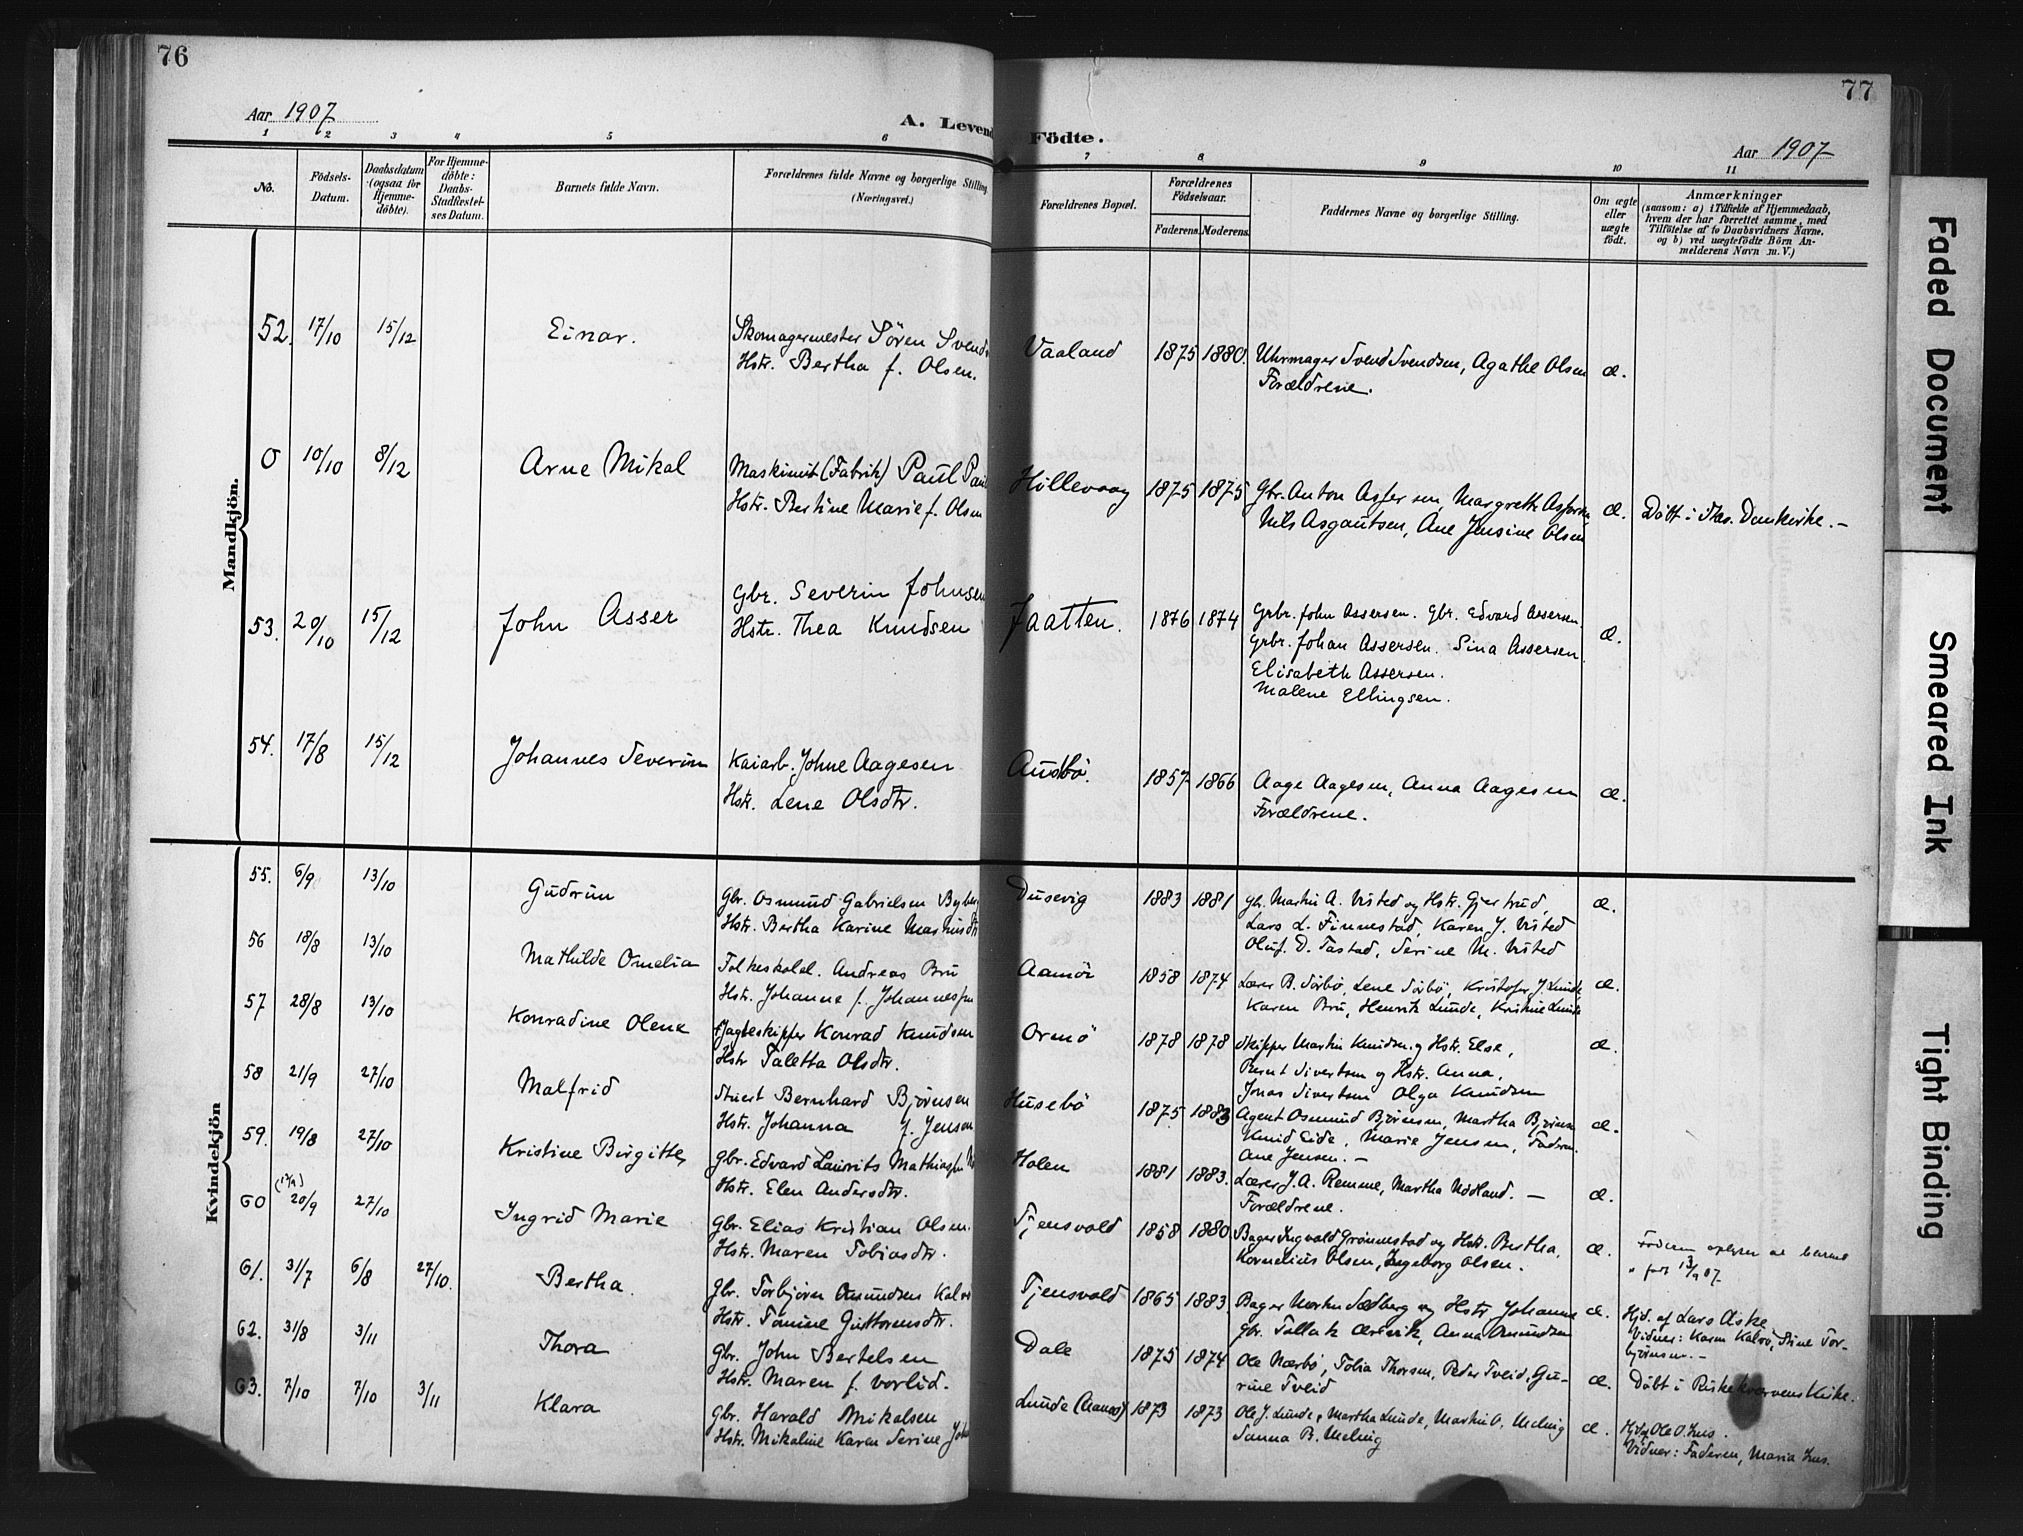 76
77
Aar 1907.
A. Levend
Födte.
Aar 1907
1 2 3 4 5 6 7 8 9 10 11
No.
Födsels-
Datum.
Daabsdatum
(ogsaa for
Hjemme-
döbte).
For Hjemme-
döbte:
Daabs-
Stadfæstel-
ses Datum.
Barnets fulde Navn.
Forældrenes fulde Navne og borgerlige Stilling
(Næringsvei.)
Forældrenes Bopæl.
Forældrenes
Födselsaar.
Faderens. Moderens.
Faddernes Navne og borgerlige Stilling.
Om ægte
eller
uægte
födt.
Anmærkninger
(saasom: a) i Tilfælde af Hjemmedaab,
hvem der har forrettet samme, med
Tilföielse af to Daabsvidners Navne.
og b) ved uægtefödte Börn An-
melderens Navn m. V.)
Mandkjön.
52. 17/10 15/12 Einar. Skomagermester Sören Svends
Hstr. Bertha f. Olsen.
Vaaland 1875 1880. Uhrmager Svend Svendsen, Agathe Olsen
Forældrene.
æ.
0 10/10 8/12 Arne Mikal Maskinist (Fabrik) Paul
Hstr. Bertine Marie f. Olsen
Hillevaag 1875 1875 Gbr. Anton Margreth
Nils Asgautsen, Ane Jensine Olsen
æ. Döbt i Domkirke. -
53. 20/10 15/12 John Asser Gbr. Severin Johnsen
Hstr. Thea Knudsen
Jaatten. 1876 1874 Grbr. John Assersen. Gbr. Edvard Assersen.
Grbr. Johan Assersen. Sina Assersen.
Elisabeth Assersen.
Malene Ellingsen.
æ.
54. 17/8 15/12 Johannes Severin Kaiarb. Johne Aagesen
Hstr. Lene Olsdtr.
Austbö. 1857 1866 Aage Aagesen, Anna Aagesen
Forældrene.
æ.
Kvindekjön
55. 6/9 13/10 Gudrun Gbr. Osmund Gabrielsen
Hstr. Bertha Karine
Dusevig 1883 1881 Gbr. Martin A. Visted og Hstr. Gjertrud,
Lars L. Finnestad, Karen J. Visted
Oluf. D. Tastad, Serine M. Visted
æ.
56 18/8 13/10 Mathilde Omelia Folkeskolel. Andreas Bru
Hstr. Johanne f. Johannessen
Aamöi 1858 1874 Lærer B. Sörbö, Lene Sörbö, Kristofer J. Lunde
Karen Bru, Henrik Lunde, Kristine Lunde
æ.
57 28/8 13/10 Konradine Olene Jagteskipper Konrad Knudsen
Hstr Taletta Olsdtr.
Ormö 1878 1878 Skipper Martin Knudsen og Hstr. Else,
Bernt Sivertsen og Hstr. Anna,
Jonas Sivertsen Olga Knudsen
æ.
58 21/9 27/10 Malfrid Stuert Bernhard Björnsen
Hstr. Johanna f. Jensen
Husebö 1875 1883 Agent Osmund Björnsen, Martha Björnsen
Knud Eide, Marie Jensen, Faderen.
Ane Jensen. -
æ.
59. 19/8 27/10 Kristine Birgitte Gbr. Edvard Laurits Mathiassen
Hstr. Elen Andersdtr.
Holen 1881 1883. Lærer J. A. Remme, Martha Nödland. -
Forældrene.
æ.
60 20/9 27/10 Ingrid Marie Gbr. Elias Kristian Olsen.
Hstr. Maren Tobiasdtr.
Tjensvold 1858 1880 Bager Ingvald Grönnestad og Hstr. Bertha,
Kornelius Olsen, Ingeborg Olsen.
æ. Faderen oplyser at barnet
13/9 07
61. 31/7 6/8 27/10. Bertha. Gbr. Torbjörn Omundsen
Hstr. Tomine Guttormsdtr.
Tjensvold 1865 1883 Bager Martin Sædberg og Hstr Johanne
Gbr. Tollak Anna Omundsen
æ. Hjd. af Lars Aske
Vidner: Karen Kalvö, Stine Tor-
björnsen. -
62. 31/8 3/11 Thora Gbr. John Bertelsen
Hstr. Maren f. Vorlid.
Dale 1875 1874 Ole Nærbö, Tolia Thorsen, Peder Tveid, Gu-
rine Tveid
æ. Döbt i Kirke.
63. 7/10 7/10 3/11 Klara Gbr. Harald Mikalsen
Hstr. Mikaline Karen Serine
Lunde 1873 1873 Ole J. Lunde, Martha Lunde, Martin O. Meling
Sanna B. Meling
æ. Hjd af Ole O. Hus.
Vidner: Faderen, Maria Hus.
Faded Document
Smeared Ink
Tight Binding